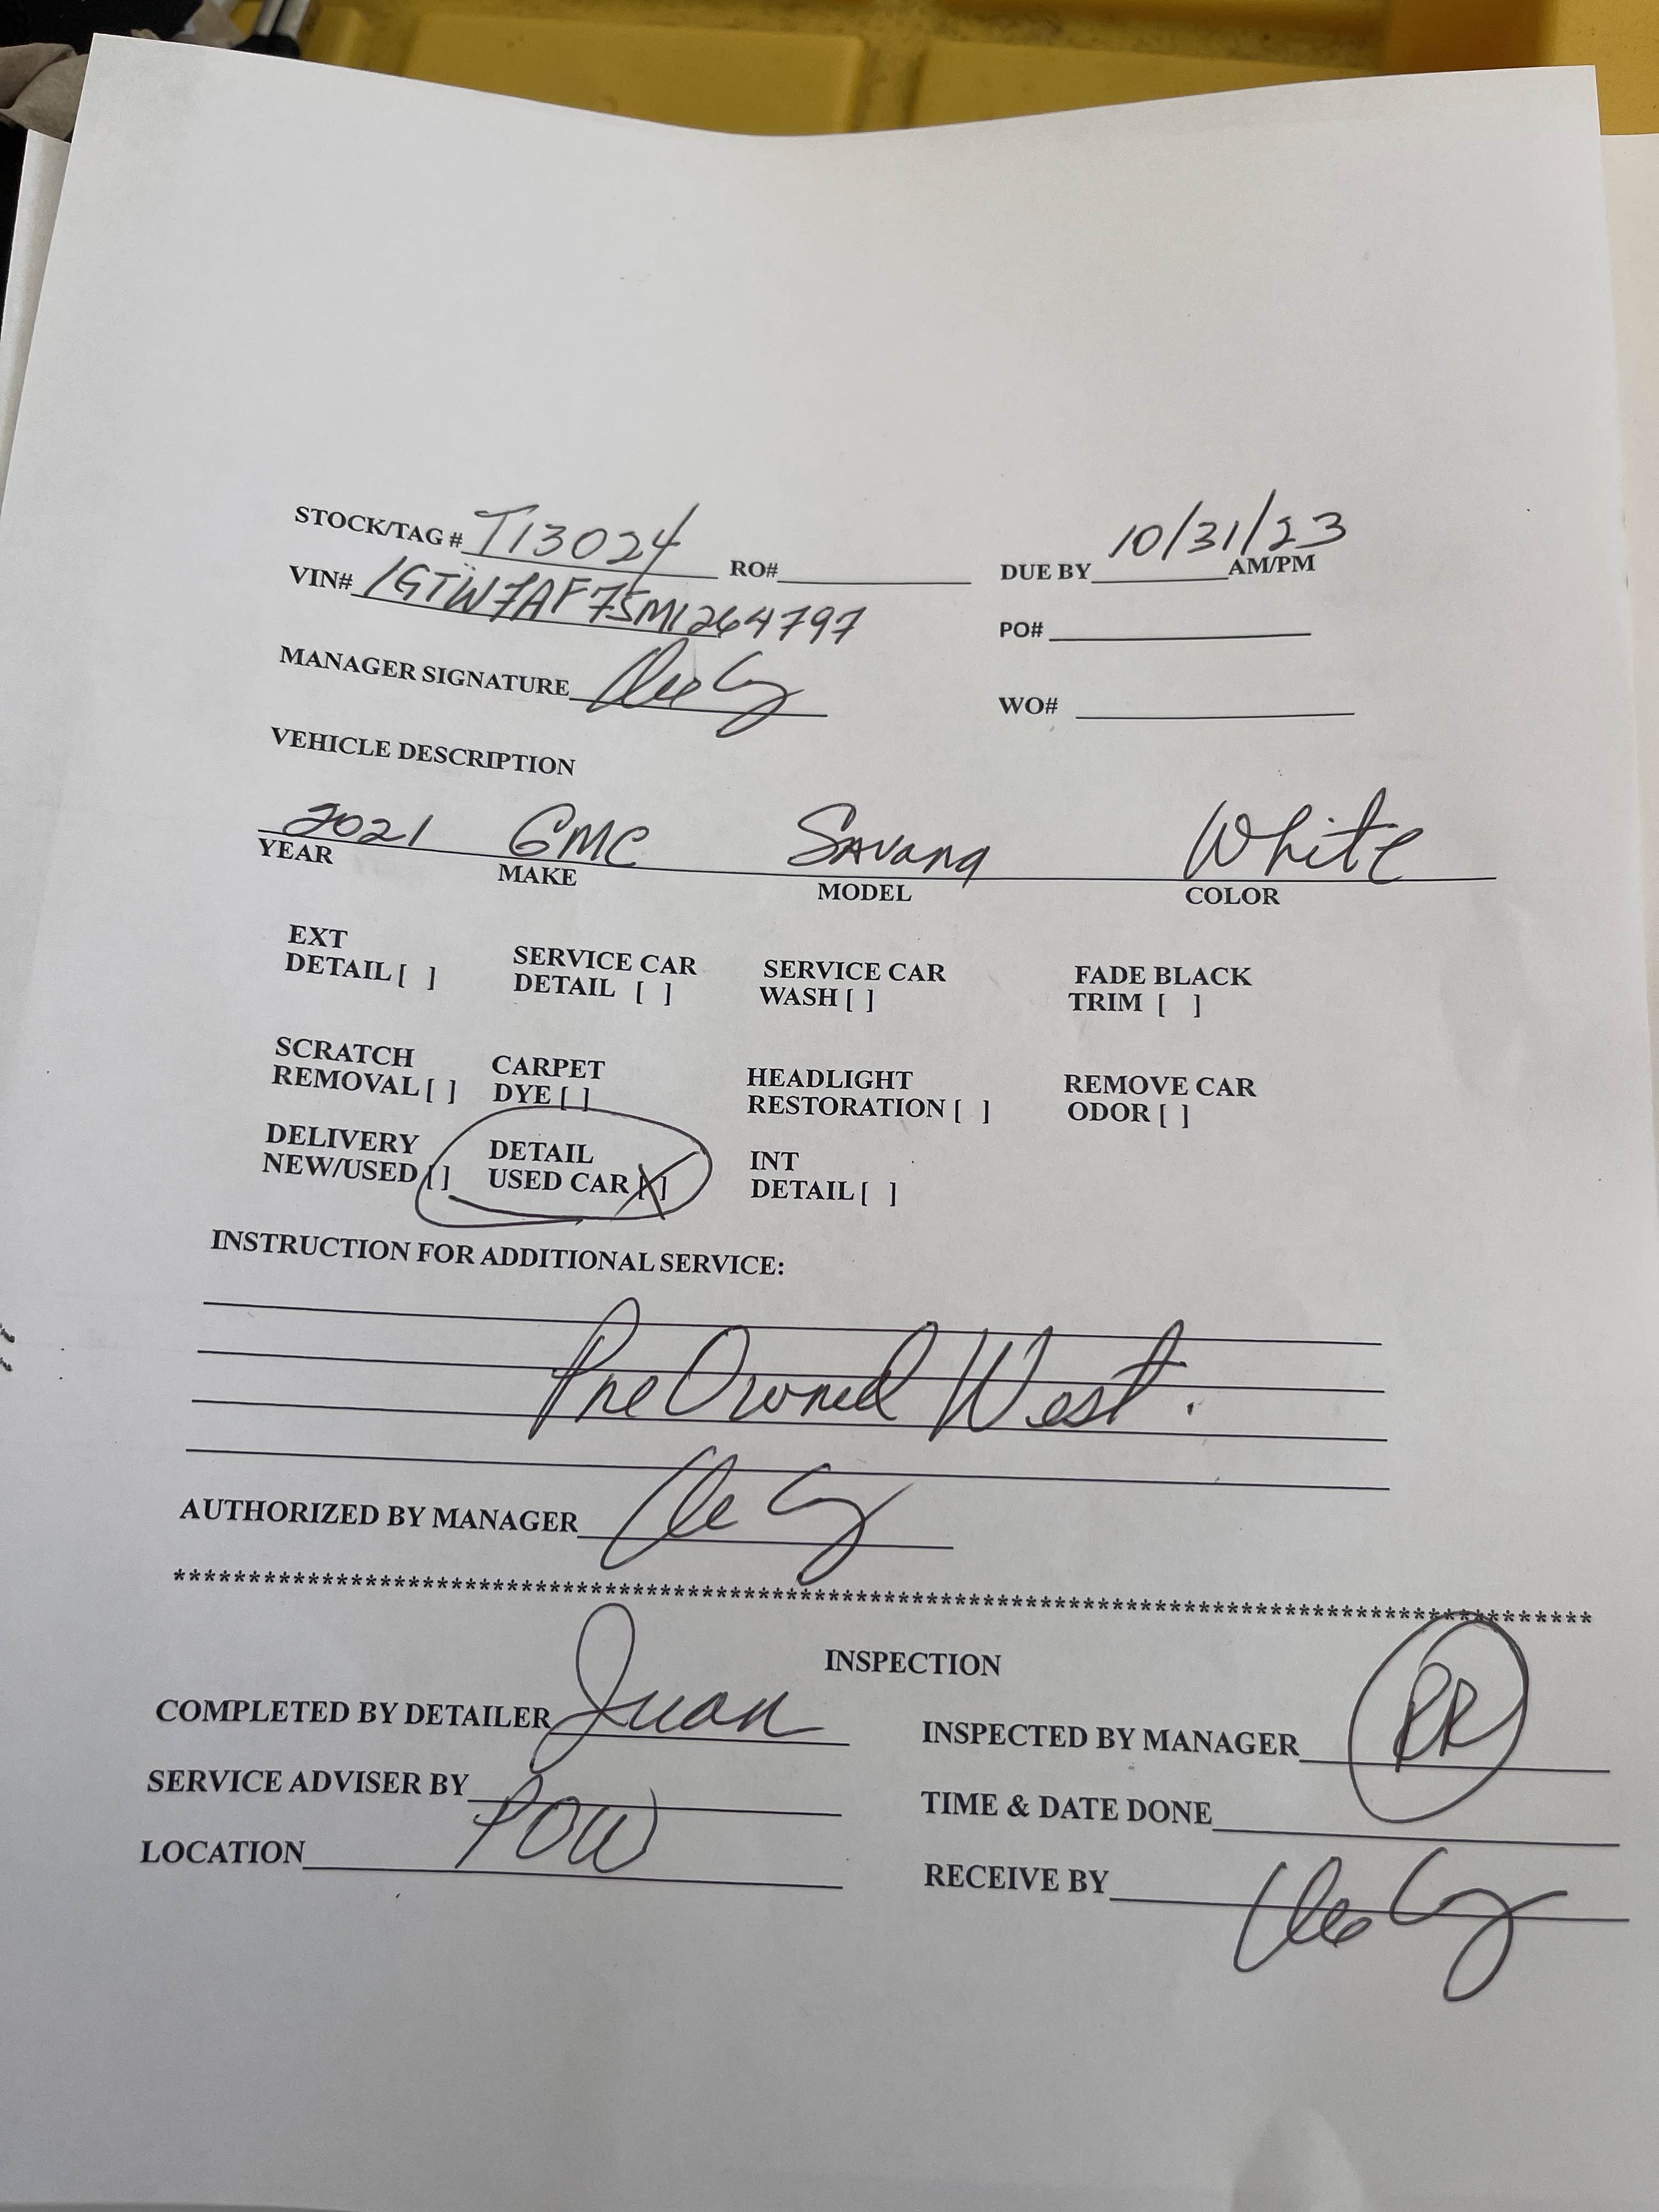 STOCK/TAG # T13024 RO# DUE BY 10/31/23 AM/PM
VIN# 1GTW7AF75M1264797 PO#
MANAGER SIGNATURE WO#
VEHICLE DESCRIPTION
2021 GMC Savana White
YEAR MAKE MODEL COLOR
EXT SERVICE CAR SERVICE CAR FADE BLACK
DETAIL [ ] DETAIL [ ] WASH [ ] TRIM [ ]
SCRATCH CARPET HEADLIGHT REMOVE CAR
REMOVAL [ ] DYE [ ] RESTORATION [ ] ODOR [ ]
DELIVERY DETAIL INT
NEW/USED [ ] USED CAR [X] DETAIL [ ]
INSTRUCTION FOR ADDITIONAL SERVICE:
Pre Owned West.
AUTHORIZED BY MANAGER
********************************************************************************
INSPECTION
COMPLETED BY DETAILER Juan INSPECTED BY MANAGER RR
SERVICE ADVISER BY TIME & DATE DONE
LOCATION POW RECEIVE BY